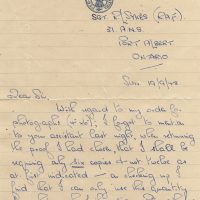 SGT. R. SYKES (R.A.F.)
31 A.N.S.
PORT ALBERT
ONTARIO
SUN. 19/9/43
Dear Sir,
With regard to my order for
photographs I forgot to mention
to your assistant last night, when returning
the proof I had chosen, that I shall be
requiring only six copies & not twelve as
at first indicated — on looking up I
find that I can only use this quantity